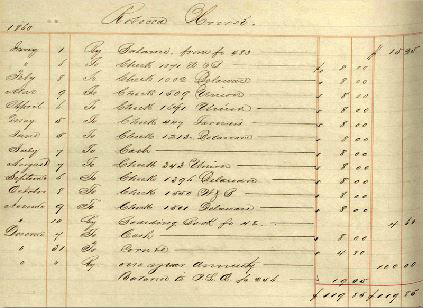 1860
Jany 1 By Balance from fo 483 $ 15 35
" 5 To Check 1071 $ 8 00
Feby 8 To Check 1002 Delaware " 8 00
Mar 9 To Check 1509 Union " 8 00
April 6 To Check 1591 Union " 8 00
May 5 To Check 449 Farmers " 8 00
June 5 To Check 1213 Delaware " 8 00
July 7 To Cash " 8 00
August 7 To Check 343 Union " 8 00
Septemb 6 To Check 1396 Delaware " 8 00
October 8 To Check 1550 " 8 00
Novemb 9 To Check 1501 Delaware " 8 00
" 10 By Boarding Book fo 42 4
Decemb 7 To Cash " 8 00
" 31 To " 4 50
" " By one years Annuity 100 00
Balance to fo 19 05
$ 119 85 $ 119 85